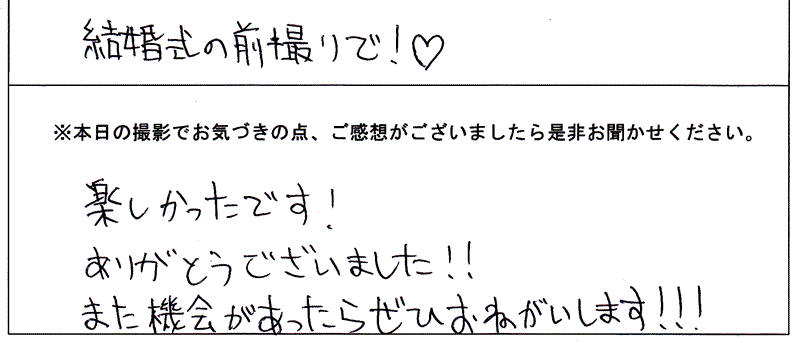 結婚式の前撮りで!♡
※本日の撮影でお気づきの点、ご感想がございましたら是非お聞かせください。
楽しかったです!
ありがとうございました!!
また機会があったらぜひおねがいします!!!